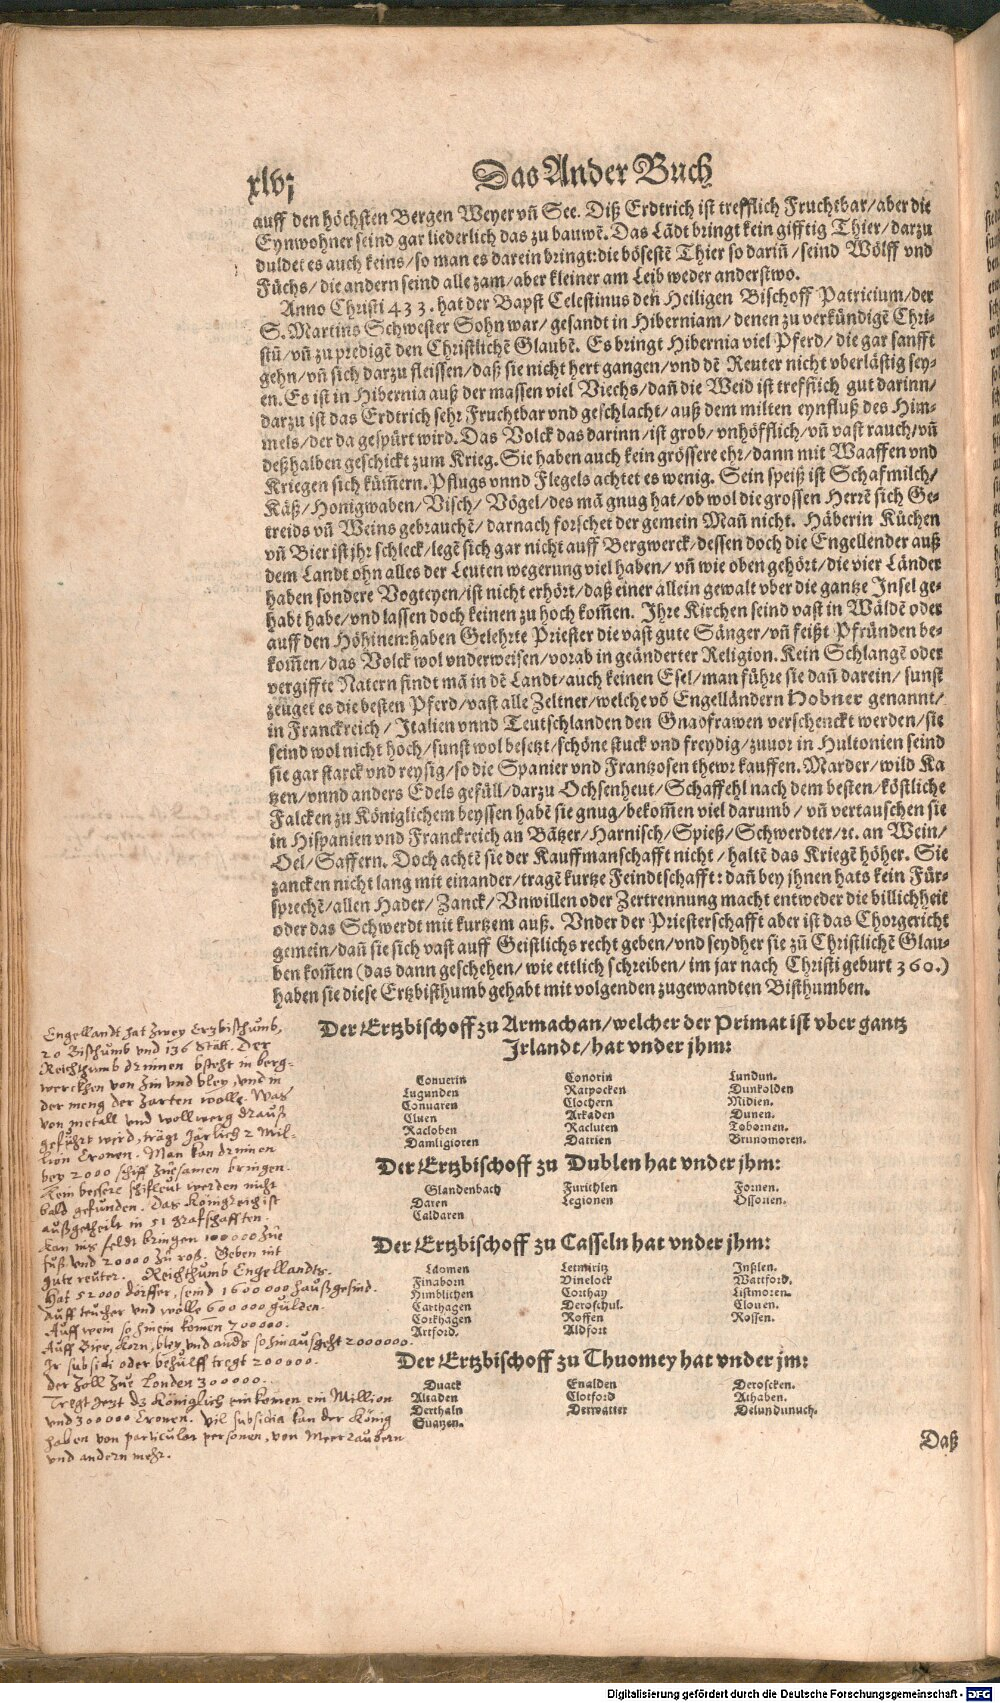 xlvj
Das Ander Buch
auff den höchsten Bergen Weyer vñ See. Diß Erdtrich ist trefflich Fruchtbar/aber die
Eynwohner seind gar liederlich das zu bauwẽ. Das Lãdt bringt kein gifftig Thier/darzu
duldet es auch keins/so man es darein bringt: die bösestẽ Thier so dariñ/seind Wölff vnd
Füchs/die andern seind alle zam/aber kleiner am Leib weder anderstwo.
Anno Christi 433. hat der Bapst Celestinus den Heiligen Bischoff Patricium/der
S. Martins Schwester Sohn war/gesandt in Hiberniam/denen zu verkündigẽ Chri-
stũ/vñ zu predigẽ den Christlichẽ Glaubẽ. Es bringt Hibernia viel Pferd/die gar sanfft
gehn/vñ sich darzu fleissen/daß sie nicht hert gangen/vnd dẽ Reuter nicht vberlästig sey-
en. Es ist in Hibernia auß der massen viel Viechs/dañ die Weid ist trefflich gut darinn/
darzu ist das Erdtrich sehr Fruchtbar vnd geschlacht/auß dem milten eynfluß des Him-
mels/der da gespürt wird. Das Volck das darinn/ist grob/vnhöfflich/vñ vast rauch/vñ
deßhalben geschickt zum Krieg. Sie haben auch kein grössere ehr/dann mit Waaffen vnd
Kriegen sich küm̃ern. Pflugs vnnd Flegels achtet es wenig. Sein speiß ist Schafmilch/
Käß/Honigwaben/Visch/Vögel/des mã gnug hat/ob wol die grossen Herrẽ sich Ge-
treids vñ Weins gebrauchẽ/darnach forschet der gemein Mañ nicht. Häberin Küchen
vñ Bier ist jhr schleck/legẽ sich gar nicht auff Bergwerck/dessen doch die Engellender auß
dem Landt ohn alles der Leuten wegerung viel haben/vñ wie oben gehört/die vier Länder
haben sondere Vogteyen/ist nicht erhört/daß einer allein gewalt vber die gantze Insel ge-
habt habe/vnd lassen doch keinen zu hoch kom̃en. Ihre Kirchen seind vast in Wäldẽ oder
auff den Höhinen: haben Gelehrte Priester die vast gute Sänger/vñ feißt Pfründen be-
kom̃en/das Volck wol vnderweisen/vorab in geänderter Religion. Kein Schlangẽ oder
vergiffte Natern findt mã in dẽ Landt/auch keinen Esel/man führe sie dañ darein/sunst
zeuget es die besten Pferd/vast alle Zeltner/welche võ Engelländern Hobner genannt/
in Franckreich/Italien vnnd Teutschlanden den Gnadfrawen verschenckt werden/sie
seind wol nicht hoch/sunst wol besetzt/schöne stuck vnd freydig/zuvor in Hultonien seind
sie gar starck vnd reysig/so die Spanier vnd Frantzosen thewr kauffen. Marder/wild Ka
tzen/vnnd anders Edels gefüll/darzu Ochsenheut/Schaffehl nach dem besten/köstliche
Falcken zu Königlichem beyssen habẽ sie gnug/bekom̃en viel darumb/vñ vertauschen sie
in Hispanien vnd Franckreich an Bãtzer/Harnisch/Spieß/Schwerdter/ꝛc. an Wein/
Oel/Saffern. Doch achtẽ sie der Kauffmanschafft nicht/haltẽ das Kriegẽ höher. Sie
zancken nicht lang mit einander/tragẽ kurtze Feindtschafft: dañ bey jhnen hats kein Für-
sprechẽ/allen Hader/Zanck/Vnwillen oder Zertrennung macht entweder die billichheit
oder das Schwerdt mit kurtzem auß. Vnder der Priesterschafft aber ist das Chorgericht
gemein/dañ sie sich vast auff Geistlichs recht geben/vnd seydher sie zũ Christlichẽ Glau-
ben kom̃en (das dann geschehen/wie ettlich schreiben/im jar nach Christi geburt 360.)
haben sie diese Ertzbisthumb gehabt mit volgenden zugewandten Bisthumben.
Engellandt hat zwey Ertzbisthumb,
20 Bisthumb vnd 136 Stätt. Der
Reichthumb drinnen bsteht in berg-
werckhen von Zin vnd bley, vnd in
der meng der zarten wolle. Was
von metall vnd wollwerg drauß
geführt wird, trägt Järlich 2 Mil-
lion Cronen. Man kan drinnen
bey 2000 schiff züesamen bringen.
Kein bessere schifleut werden nicht
bald gefunden. Das Königreich ist
außgetheilt in 51 Grafschafften.
Kan ins feldt bringen 100000 züe
fuß vnd 20000 zu roß. Geben nit
gute reuter. Reichthumb Engellandts.
Hat 52000 dörffer, seind 1600000 haußgesind.
Auff teucher vnd wolle 600000 gulden.
Auff wein so hinein komen 700000.
Auff Bier, Korn, bley vnd anders so hinaußgeht 2000000.
Jr subsidi oder behülff tregt 200000.
Der Zoll züe Londen 300000.
Tregt Jetzt dz Königlich einkomen ein Million
vnd 300000 Cronen. Vil subsidia kan der König
haben von particular personen, von Meerraubern
vnd andern mehr.
Der Ertzbischoff zu Armachan/welcher der Primat ist vber gantz
Irlandt/hat vnder jhm:
Conuerin Conorin Lundun.
Lugunden Ratpocken Dunkolden
Conuaren Clochern Midien.
Cluen Arkaden Dunen.
Racloben Racluten Tobornen.
Damligioren Darrien Brunomoren.
Der Ertzbischoff zu Dublen hat vnder jhm:
Glandenbach Furichlen Fornen.
Daren Legionen Ossorien.
Caldaren
Der Ertzbischoff zu Casseln hat vnder jhm:
Laomen Letmiritz Inßlen.
Finaborn Vinelock Wartford.
Himblichen Corthay Listmoren.
Carthagen Deroschul. Clouen.
Corkhagen Roffen Rossen.
Artford. Aldfort
Der Ertzbischoff zu Thuomey hat vnder jm:
Duack Enalden Deroscken.
Aliaden Clotford Athaben.
Derthaln Derwatter Delundunuch.
Suatzen.
Daß
Digitalisierung gefördert durch die Deutsche Forschungsgemeinschaft - DFG